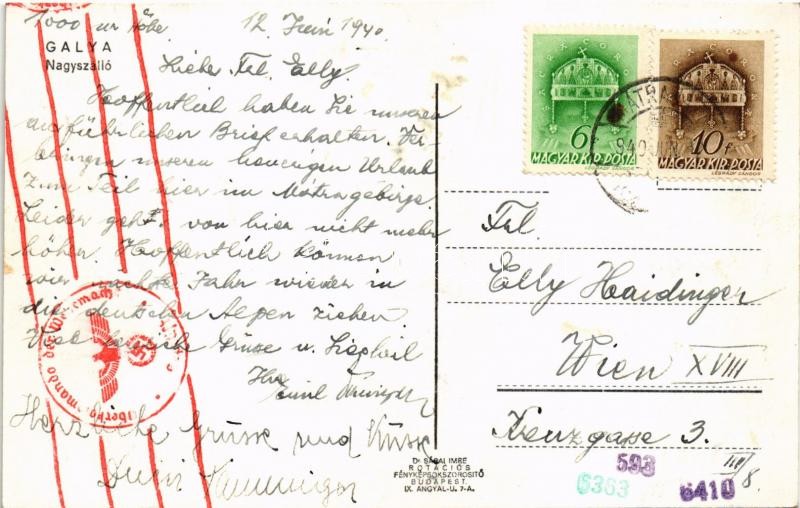 1000 m Höhe. 12 Juni 1940
GALYA
Nagyszálló
Liebe Frl. Elly.
Hoffentlich haben Sie unseren
ausführlichen Brief erhalten. Ver-
bringen unseren heurigen Urlaub
zum Teil hier im Mátragebirge.
Leider geht von hier nicht mehr
höher. Hoffentlich können
wir nächste Jahr wieder in
die deutschen Alpen ziehen.
Viel herzliche Grüsse u. Siegheil
Ihr
Emil
Herzliche Grüsse und Küsse
Oberkommando der Wehrmacht
SACRA CORONA
6f
MAGYAR KIR. POSTA
LÉGRÁDY SÁNDOR
SACRA CORONA
10f
MAGYAR KIR. POSTA
LÉGRÁDY SÁNDOR
MÁTRA
940 JUN
Frl.
Elly Haidinger
Wien XVIII
Kreuzgasse 3.
III/8.
593
6363
6410
Dr SASAI IMRE
ROTÁCIÓS
FÉNYKÉPSOKSZOROSÍTÓ
BUDAPEST,
IX. ANGYAL-U. 7-A.